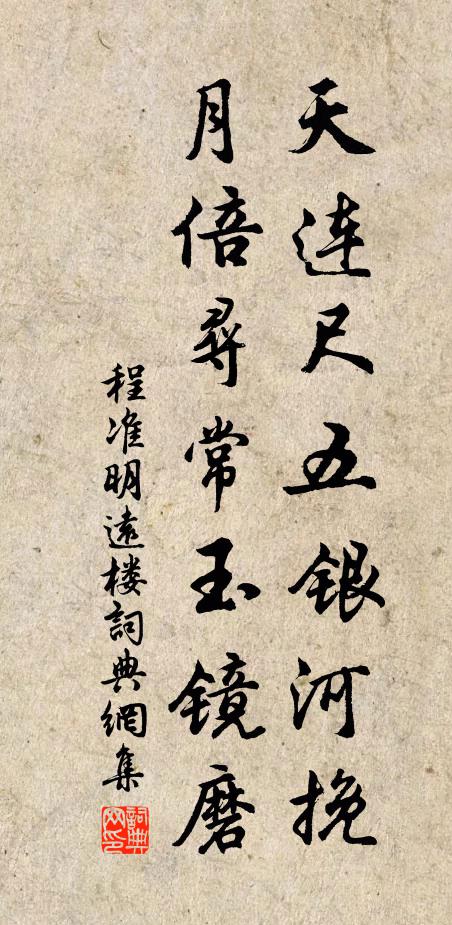 天连尺五银河挽
月倍寻常玉镜磨
程准明遠楼詞典網集
詞典網印